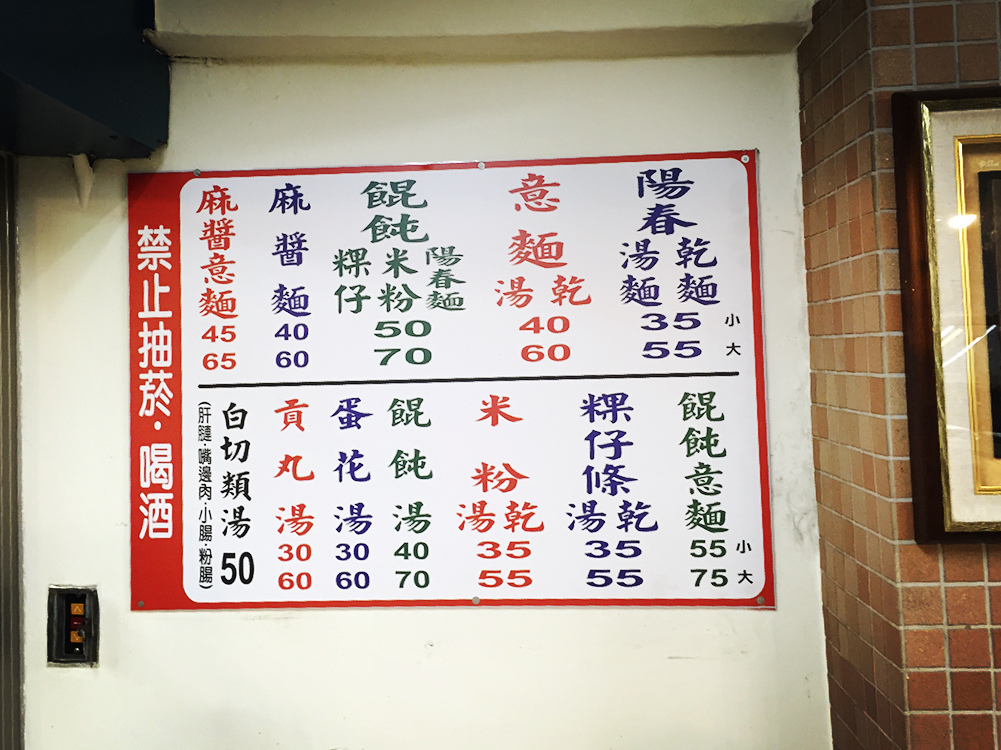 陽春
湯麵 乾麵
35 小
55 大
意麵
湯 乾
40
60
餛飩
陽春麵
米粉
粿仔
50
70
麻醬麵
40
60
麻醬意麵
45
65
餛飩意麵
55 小
75 大
粿仔條
湯 乾
35
55
米粉
湯 乾
35
55
餛飩湯
40
70
蛋花湯
30
60
貢丸湯
30
60
白切類湯
50
(肝膆·嘴邊肉·小腸·粉腸)
禁止抽菸·喝酒